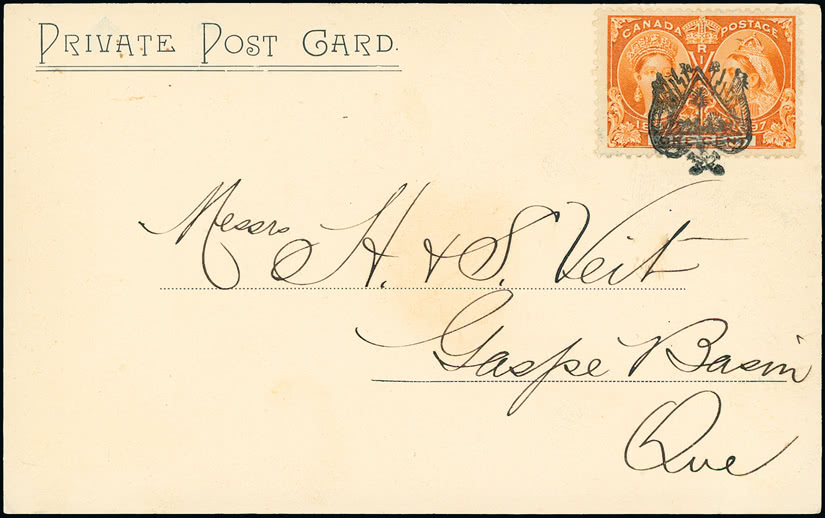 PRIVATE POST CARD.
CANADA POSTAGE
ONE CENT
Messrs H. & S. Veit
Gaspe Basin
Que